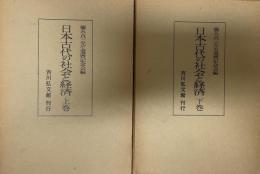 彌永貞三先生還暦記念会編
日本古代の社会と経済 上巻
吉川弘文館 刊行
彌永貞三先生還暦記念会編
日本古代の社会と経済 下巻
吉川弘文館 刊行